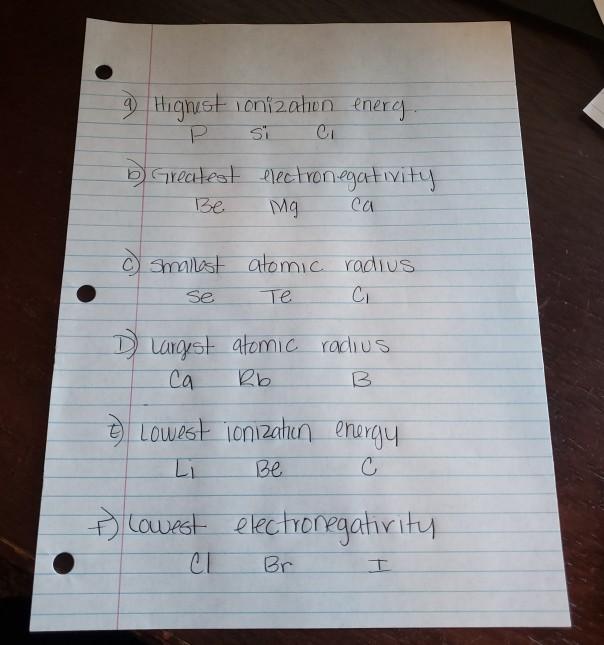 a) Highest ionization energ.
P Si Cl
b) Greatest electronegativity
Be Mg Ca
c) smallest atomic radius
Se Te Cl
D) Largest atomic radius
Ca Rb B
E) Lowest ionization energy
Li Be C
F) Lowest electronegativity
Cl Br I